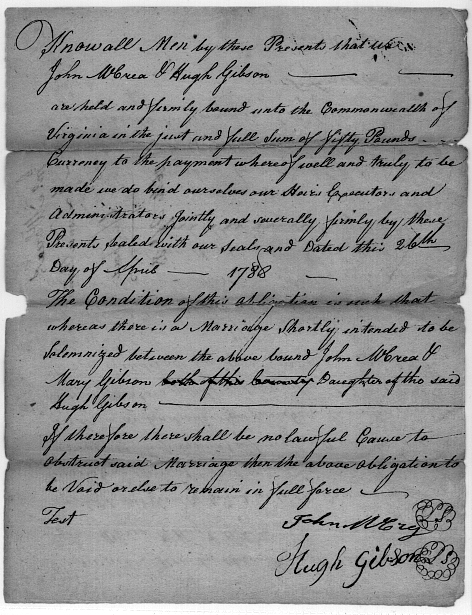 Know all Men by these Presents that we
John McCrea & Hugh Gibson
are held and firmly bound unto the Commonwealth of
Virginia in the just and full Sum of fifty Pounds
Currency to the payment whereof well and truly to be
made we do bind ourselves our Heirs Executors and
Administrators Jointly and severally firmly by these
Presents Sealed with our Seals, and Dated this 26th
Day of April — 1788 —
The Condition of this obligation is such that
whereas there is a Marriage Shortly intended to be
Solemnized between the above bound John McCrea &
Mary Gibson both of this County Daughter of the said
Hugh Gibson
If therefore there shall be no lawful Cause to
obstruct said Marriage then the above obligation to
be Void or else to remain in full force
Test
John McCrey LS
Hugh Gibson LS